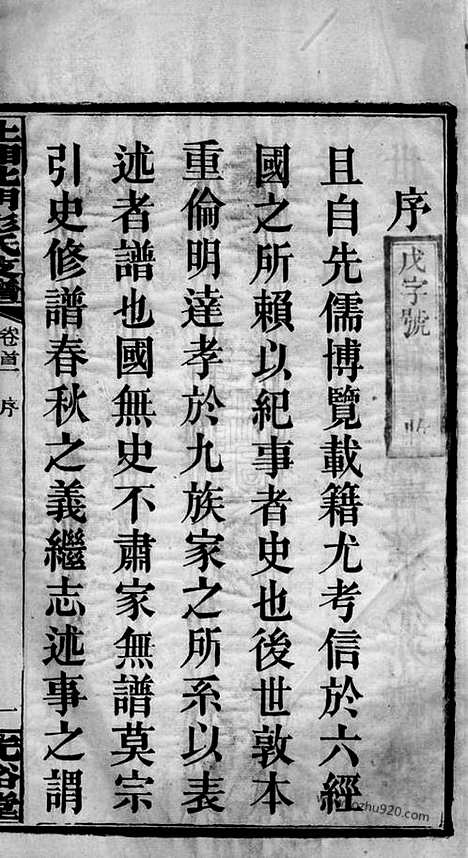 序
戊字號
且自先儒博覽載籍尤考信於六經
國之所賴以紀事者史也後世敦本
重倫明達孝於九族家之所系以表
述者譜也國無史不肅家無譜莫宗
引史修譜春秋之義繼志述事之謂
上湘北門彭氏支譜
卷首一
序
一
光裕堂